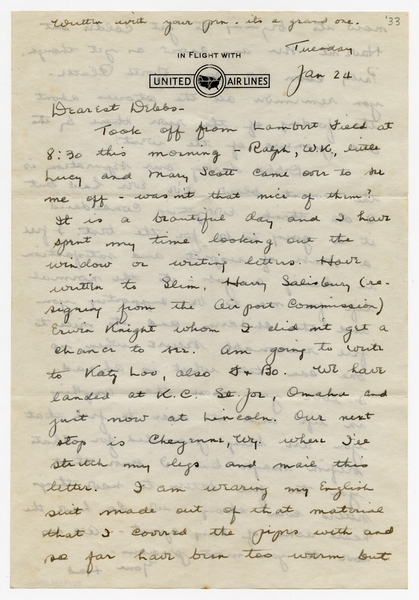 Written with your pen. its a grand one. '33
Tuesday
IN FLIGHT WITH
UNITED AIR LINES
Jan 24
Dearest Debbs-
Took off from Lambert Field at
8:30 this morning - Ralph, W.K., little
Lucy and Mary Scott came over to see
me off - wasn't that nice of them?
It is a beautiful day and I have
spent my time looking out the
window or writing letters. Have
written to Slim, Harry Salisbury (re-
signing from the Airport Commission)
Erwin Knight whom I did n't get a
chance to see. Am going to write
to Katy Loo, also & Bo. We have
landed at K.C. St. Joe, Omaha and
just now at Lincoln. Our next
stop is Cheyenne, Wy. where I'll
stretch my legs and mail this
letter. I am wearing my English
suit made out of that material
that I covered the pipes with and
so far have been too warm but